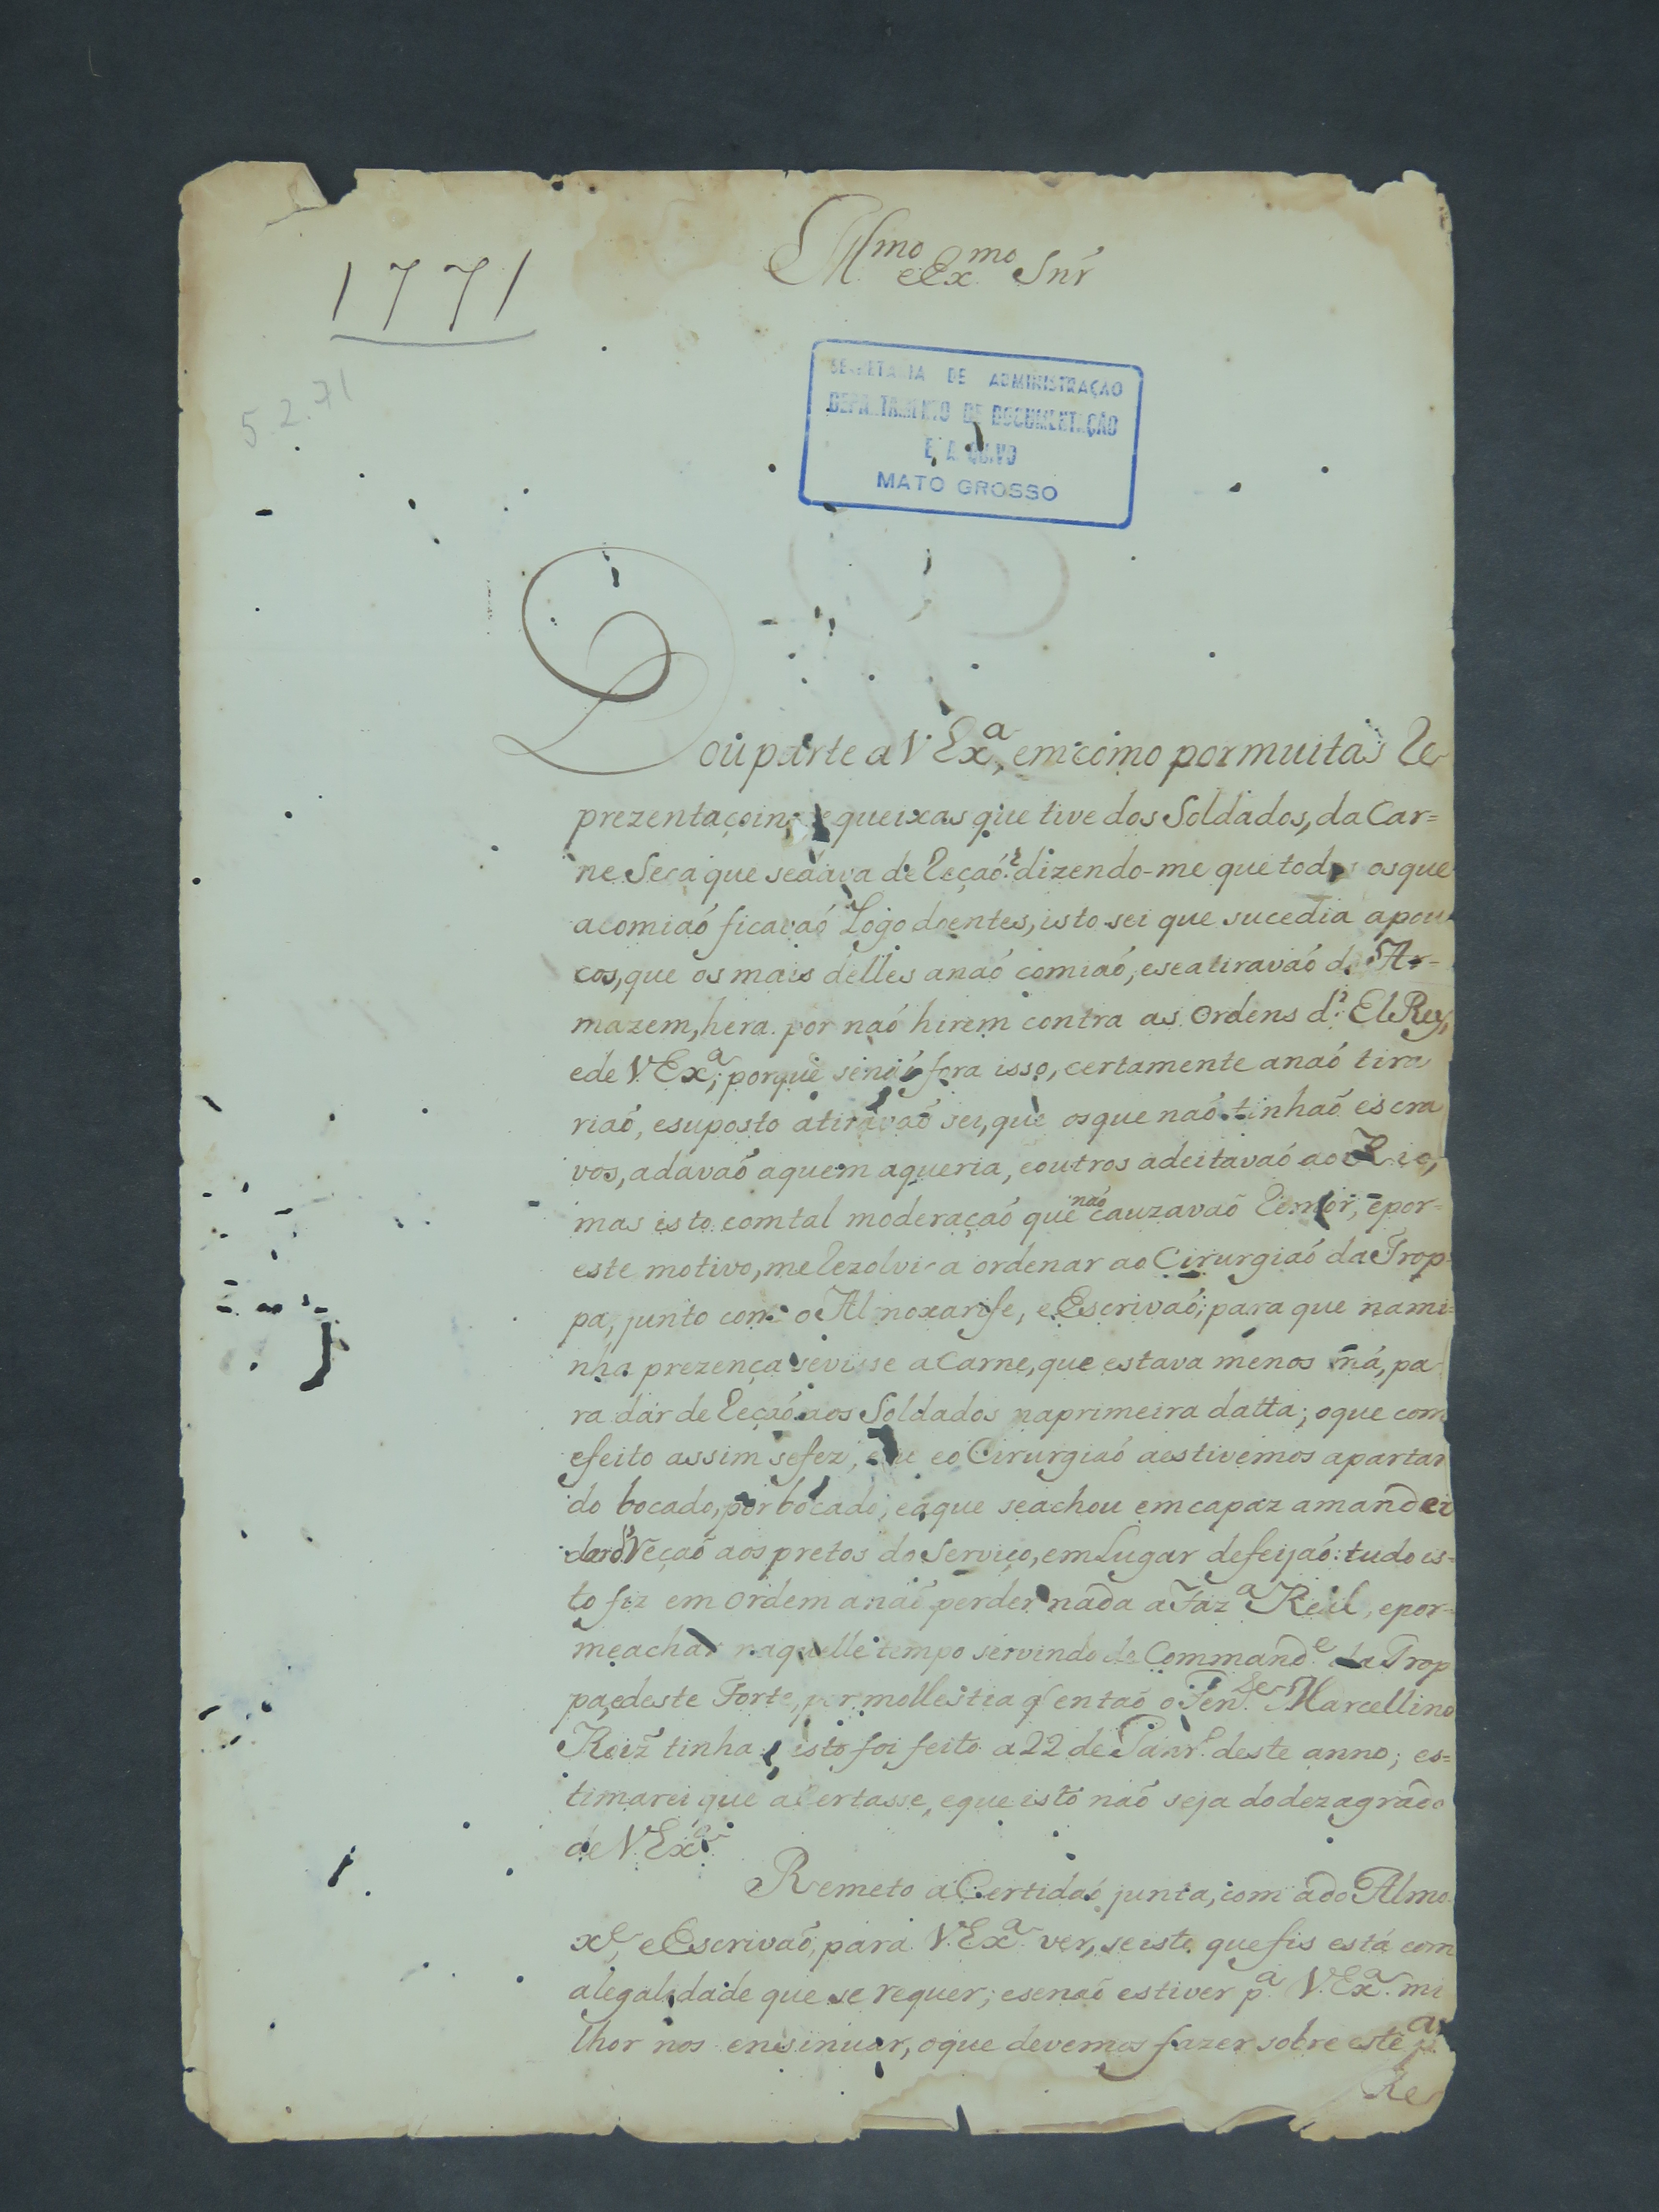 Illmo e Exmo Snr
1771
5.2.71
SECRETARIA DE ADMINISTRAÇÃO
DEPARTAMENTO DE DOCUMENTAÇÃO
E ARQUIVO
MATO GROSSO
Dou parte a V Exa, em como por muitas Re
prezentaçoins, e queixas que tive dos Soldados, da Car=
ne Seca que se dava de Reçaó: dizendo-me que todos os que
a comiaó ficavaó Logo doentes, isto sei que sucedia a pou
cos, que os mais delles a naó comiaó, e se a tiravaó do Ar-
mazem, hera por naó hirem contra as Ordens d. El Rey,
e de V. Exa; porque senaó fora isso, certamente a naó tira
riaó, e suposto a tiravaó sei, que os que naó tinhaó escra
vos, a davaó a quem a queria, e outros a deitavaó ao Rio,
mas isto com tal moderaçaó que naó cauzavaó Remor, e por=
este motivo, me Rezolvi a ordenar ao Cirurgiaó da Trop
pa, junto com o Almoxarife, e Escrivaó; para que na mi=
nha prezença se visse a Carne, que estava menos má, pa
ra dar de Reçaó aos Soldados na primeira datta; o que com
efeito assim se fez, e eu e o Cirurgiaó a estivemos apartan
do bocado, por bocado, e a que se achou em capaz a mandei
dar de Reçaó aos pretos do Serviço, em Lugar de feijaó: tudo is=
to fiz em Ordem a naó perder nada a Faza Real, e por=
me achar naquelle tempo servindo de Commande da Trop
pa, e deste Forte, por mollestia q entaó o Tene Marcellino
Roiz tinha, isto foi feito a 22 de Janro deste anno; es=
timarei que acertasse, e que isto naó seja do dezagrado
de V. Exa.
Remeto a Certidaó junta, com a do Almo
xe, e Escrivaó, para V. Exa ver, se isto que fis está com
a legalidade que se requer; e senaó estiver pa V. Exa mi
lhor nos ensinuar, o que devemos fazer sobre este par
Re